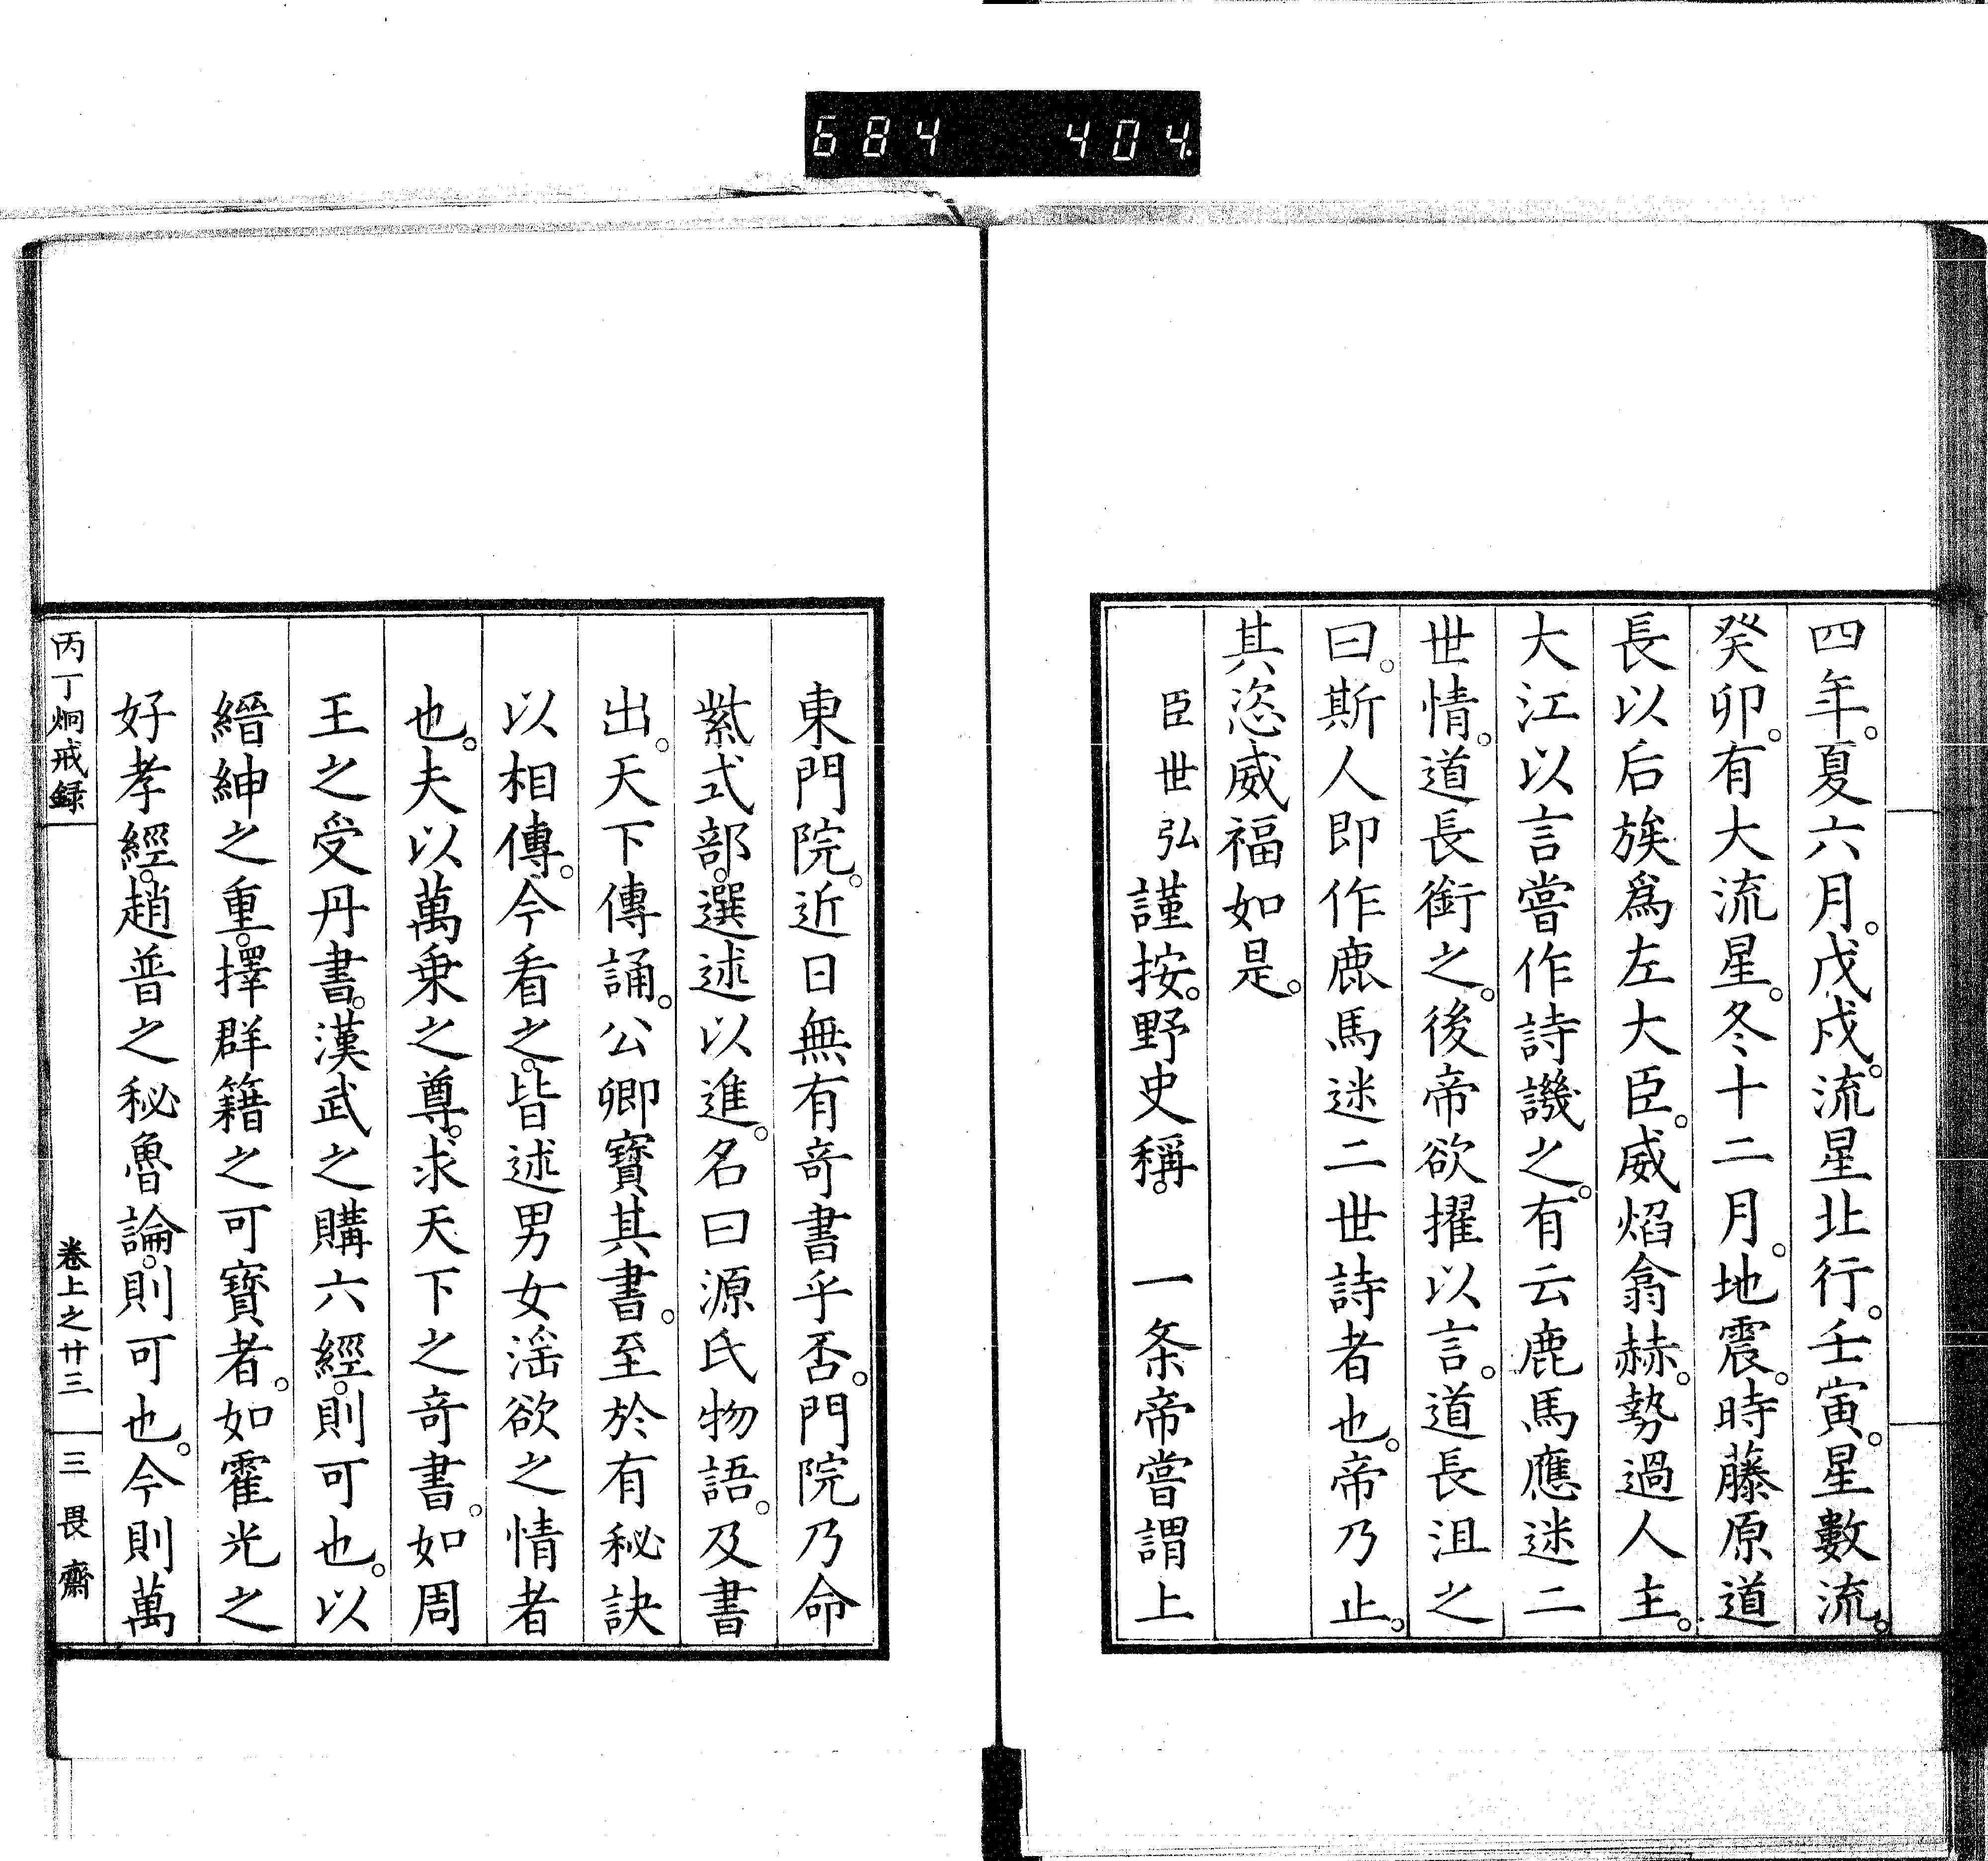 684 404
四年。夏六月。戊戌。流星北行。壬寅。星數流。
癸卯。有大流星。冬十二月。地震。時藤原道
長以后族爲左大臣。威焰翕赫。勢過人主。
大江以言嘗作詩譏之。有云鹿馬應迷二
世情。道長銜之。後帝欲擢以言。道長沮之
曰。斯人即作鹿馬迷二世詩者也。帝乃止。
其恣威福如是。
臣世弘謹按。野史稱。一条帝嘗謂上
東門院。近日無有奇書乎否。門院乃命
紫式部。選述以進。名曰源氏物語。及書
出。天下傳誦。公卿寳其書。至於有秘訣
以相傳。今看之。皆述男女淫欲之情者
也。夫以萬乗之尊。求天下之奇書。如周
王之受丹書。漢武之購六經。則可也。以
縉紳之重。擇群籍之可寳者。如霍光之
好孝經。趙普之秘魯論。則可也。今則萬
丙丁炯戒録 卷上之廿三 三畏齋